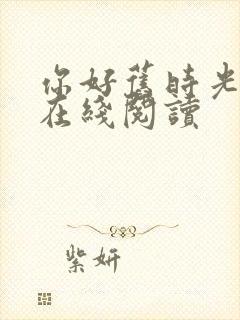 你好舊時光
在綫閱讀
紫妍